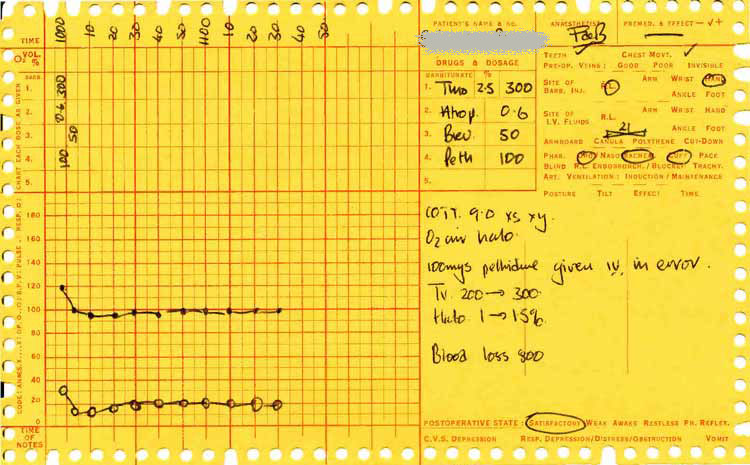 TIME 1000 10 20 30 40 50 1100 10 20 30 40 50
PATIENT'S NAME & NO.
ANAESTHETIST
PREMED. & EFFECT — √ +
O₂ VOL. %
DRUGS & DOSAGE
BARBITURATE %
1. Thio 2.5 300
2. Atrop. 0.6
3. Brev. 50
4. Peth 100
5.
BARB.
1.
2.
3.
4.
5.
0.6 300
100 50
CHART EACH DOSE AS GIVEN
TEETH CHEST MOVT.
PRE-OP. VEINS: GOOD POOR INVISIBLE
SITE OF BARB. INJ. R.L. ARM WRIST HAND
ANKLE FOOT
SITE OF I.V. FLUIDS R.L. ARM WRIST HAND
21 ANKLE FOOT
ARMBOARD CANULA POLYTHENE CUT-DOWN
PHAR. ORO/NASO TRACHEAL CUFF PACK
BLIND R.L. ENDOBRONCH./BLOCKER TRACHY.
ART. VENTILATION: INDUCTION/MAINTENANCE
POSTURE TILT EFFECT TIME
180
160
140
120
100
80
60
40
20
0
COTT. 9.0 xs xy.
O₂ air halo.
100mgs pethidine given IV, in error.
Tv. 200 → 300.
Halo. 1 → 1.5%.
Blood loss 800
TIME OF NOTES
POSTOPERATIVE STATE: SATISFACTORY WEAK AWAKE RESTLESS PH. REFLEX.
C.V.S. DEPRESSION RESP. DEPRESSION/DISTRESS/OBSTRUCTION VOMIT